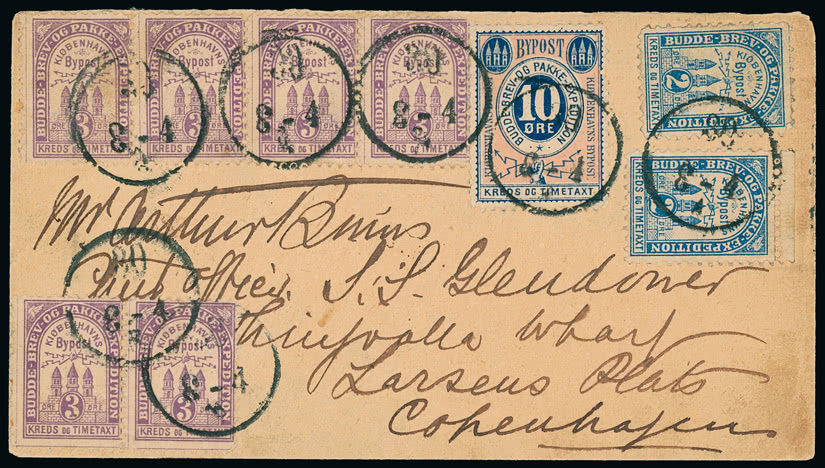 BUDDE-BREV-OG PAKKE-EXPEDITION
KJØBENHAVNS
Bypost
3 ØRE
KREDS OG TIMETAXT
BUDDE-BREV-OG PAKKE-EXPEDITION
KJØBENHAVNS
Bypost
3 ØRE
KREDS OG TIMETAXT
BUDDE-BREV-OG PAKKE-EXPEDITION
KJØBENHAVNS
Bypost
3 ØRE
KREDS OG TIMETAXT
BUDDE-BREV-OG PAKKE-EXPEDITION
KJØBENHAVNS
Bypost
3 ØRE
KREDS OG TIMETAXT
BYPOST
BUDDE-BREV-OG PAKKE-EXPEDITION
KJØBENHAVNS BYPOST
10
ØRE
KREDS OG TIMETAXT
BUDDE-BREV-OG PAKKE-EXPEDITION
KJØBENHAVNS
Bypost
2 ØRE
KREDS OG TIMETAXT
BUDDE-BREV-OG PAKKE-EXPEDITION
KJØBENHAVNS
Bypost
ØRE
KREDS OG TIMETAXT
80
8-4
80
8-4
80
8-4
8-4
80
8-4
Mr Arthur
Chief officer S.S. Glendower
Thingvalla Wharf
Larsens Plats
Copenhagen
80
8-4
8-4
BUDDE-BREV-OG PAKKE-EXPEDITION
KJØBENHAVNS
Bypost
3 ØRE
KREDS OG TIMETAXT
BUDDE-BREV-OG PAKKE-EXPEDITION
KJØBENHAVNS
Bypost
3 ØRE
KREDS OG TIMETAXT